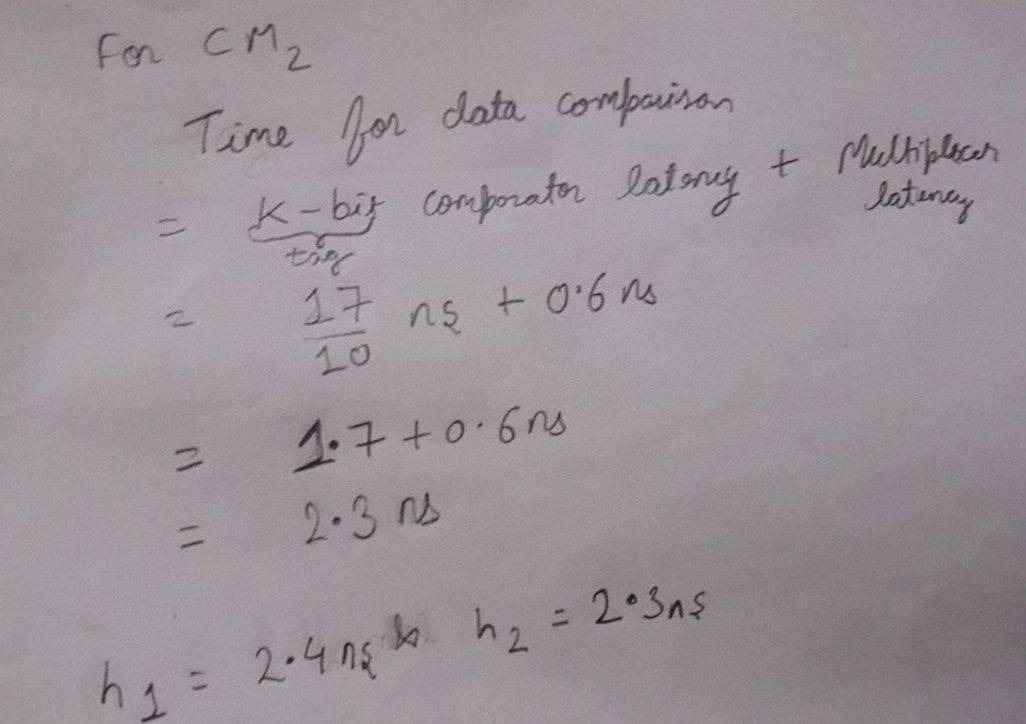 For CM2
Time for data comparison
= K-bit comparator latency + Multiplexer latency
tag
= 17/10 ns + 0.6 ns
= 1.7 + 0.6 ns
= 2.3 ns
h1 = 2.4 ns & h2 = 2.3 ns